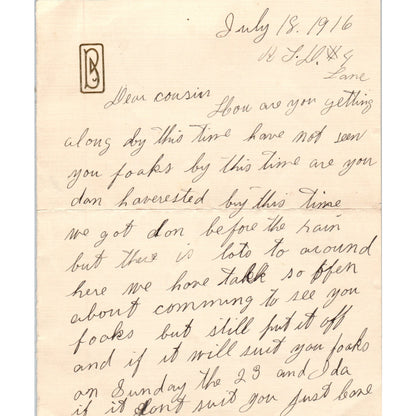 July 18. 1916
R F. D. #4
Lane
Dear cousin
How are you getting
along by this time have not seen
you foaks by this time are you
don haverested by this time
we got don before the rain
but thue is lots to around
here we have talk so offen
about comming to see you
foaks but still put it off
and if it will suit you foaks
on Sunday the 23 and Ida
if it dont suit you just leave